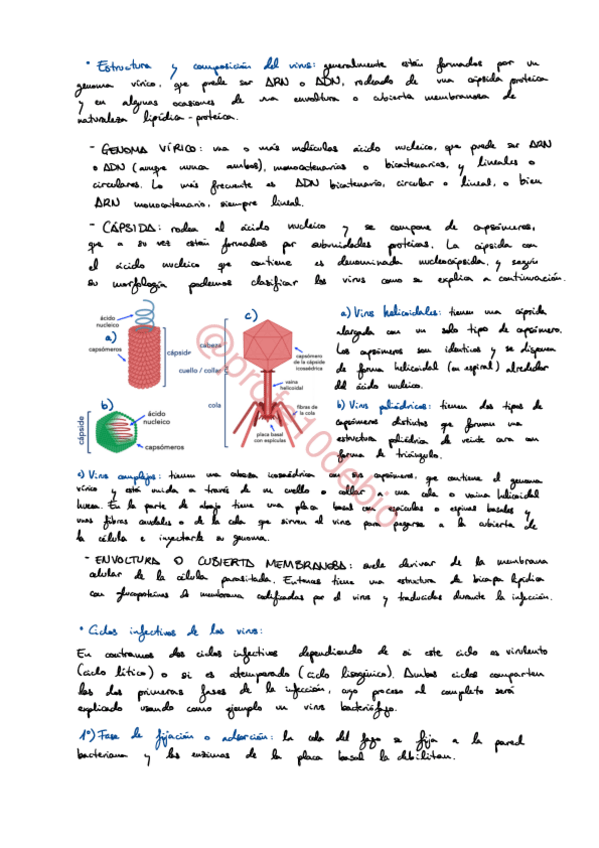 • Estructura y composición del virus: generalmente están formados por un
genoma vírico, que puede ser ARN o ADN, rodeado de una cápsida proteica
y en algunas ocasiones de una envoltura o cubierta membranosa de
naturaleza lipídica-proteica.
- GENOMA VÍRICO: una o más moléculas ácido nucleico, que puede ser ARN
o ADN (aunque nunca ambos), monocatenarias o bicatenarias, y lineales o
circulares. Lo más frecuente es ADN bicatenario, circular o lineal, o bien
ARN monocatenario, siempre lineal.
- CÁPSIDA: rodea al ácido nucleico y se compone de capsómeros,
que a su vez están formados por subunidades proteicas. La cápsida con
el ácido nucleico que contiene es denominada nucleocápsida, y según
su morfología podemos clasificar los virus como se explica a continuación.
ácido nucleico
a)
capsómeros
cápside
b)
cápside
ácido nucleico
capsómeros
c)
cabeza
cuello / collar
cola
capsómero de la cápside icosaédrica
vaina helicoidal
fibras de la cola
placa basal con espículas
@profe10debio
a) Virus helicoidales: tienen una cápsida
alargada con un solo tipo de capsómero.
Los capsómeros son idénticos y se disponen
de forma helicoidal (en espiral) alrededor
del ácido nucleico.
b) Virus poliédricos: tienen dos tipos de
capsómeros distintos que forman una
estructura poliédrica de veinte caras con
forma de triángulo.
c) Virus complejos: tienen una cabeza icosaédrica con sus capsómeros, que contiene el genoma
vírico y está unida a través de un cuello o collar a una cola o vaina helicoidal
hueca. En la parte de abajo tiene una placa basal con espículas o espinas basales y
unas fibras caudales o de la cola que sirven al virus para pegarse a la cubierta de
la célula e inyectarle su genoma.
- ENVOLTURA O CUBIERTA MEMBRANOSA: suele derivar de la membrana
celular de la célula parasitada. Entonces tiene una estructura de bicapa lipídica
con glucoproteínas de membrana codificadas por el virus y traducidas durante la infección.
• Ciclos infectivos de los virus:
Encontramos dos ciclos infectivos dependiendo de si este ciclo es virulento
(ciclo lítico) o si es atemperado (ciclo lisogénico). Ambos ciclos comparten
las dos primeras fases de la infección, cuyo proceso al completo será
explicado usando como ejemplo un virus bacteriófago.
1º) Fase de fijación o adsorción: la cola del fago se fija a la pared
bacteriana y las enzimas de la placa basal la debilitan.